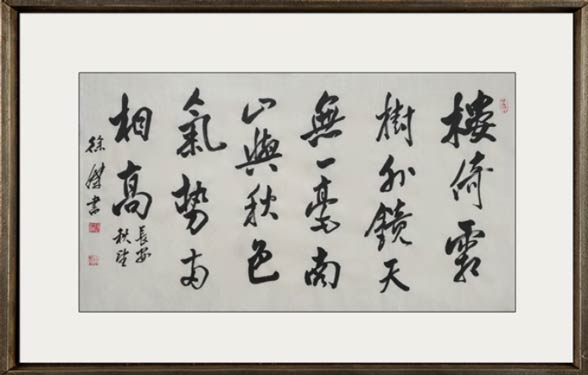 樓倚霜
樹外鏡天
無一毫南
山與秋色
氣勢兩
相高
長安
秋望
徐傑書